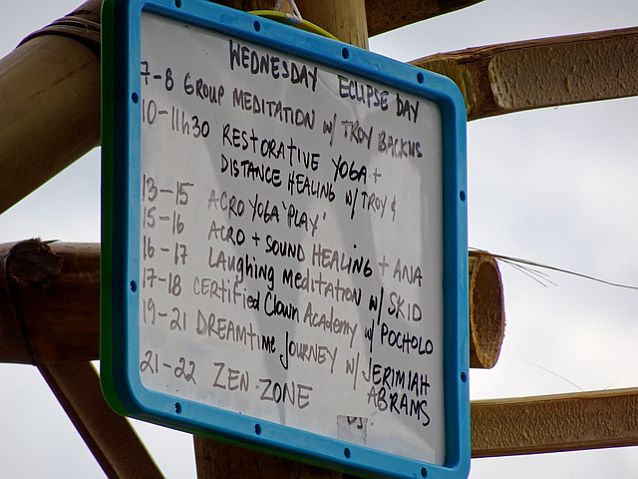 WEDNESDAY ECLIPSE DAY
7-8 GROUP MEDITATION W/ TROY BACKUS
10-11h30 RESTORATIVE YOGA +
DISTANCE HEALING W/ TROY &
13-15 ACRO YOGA 'PLAY'
15-16 ACRO + SOUND HEALING + ANA
16-17 LAUGHING MEDITATION W/ SKID
17-18 CERTIFIED Clown Academy W/ POCHOLO
19-21 DREAMTIME JOURNEY W/ JERIMIAH
ABRAMS
21-22 ZEN-ZONE